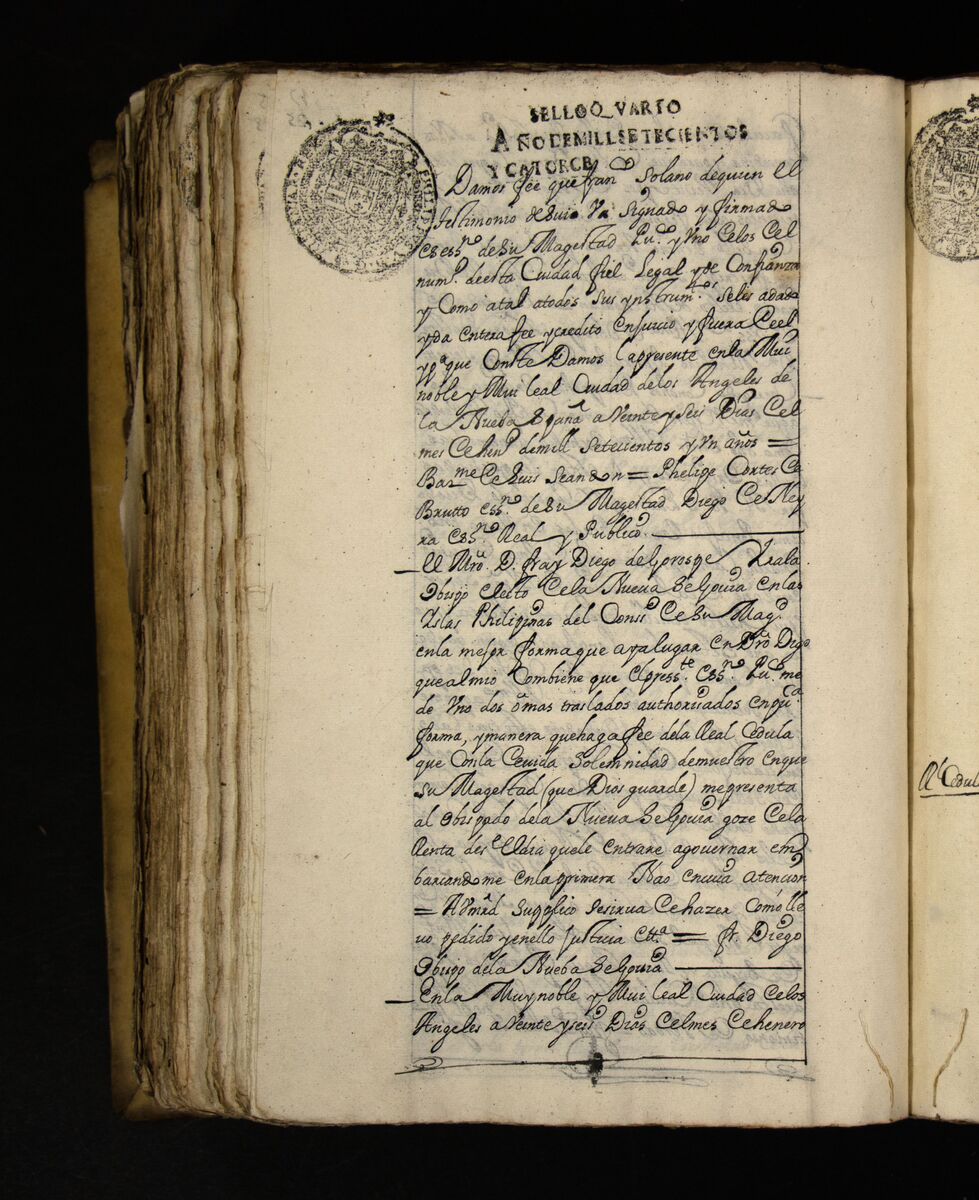 SELLOQVARTO
AÑODEMILLSETECIENTOS
Y CATORCE
Damos fee que fran.co Solano dequien el
testimonio de suio Va signado y firmado
es ess.no de su Magestad Pu.co y Vno Celos Cel
num.o deesta Ciudad fiel Legal y de Confianza
y Como atal atodos sus ynstrum.tos seles adado
yda entera fee ycredito en Juicio y fuera Ceel
yp.a que Conste Damos lapresente enla Mui
noble y Mui leal Ciudad delos Angeles de
la Nueba España a Veinte y seis Dias Cel
mes Ce hen.o demill setecientos y Vn años =
Bar.me Ce Luis Seandon = Phelipe Cortes Ce
Brutto ess.no de Su Magestad Diego Ce Ney
ra ess.no Real y Publico
el Mro. D. fray Diego de Gorospe Yrala
Obispo electo Cela Nueva Segovia enlas
Yslas Philipinas del Cons.o Ce su Mag.d
enla mejor forma que aya lugar en Dro Digo
que almio Combiene que el press.te ess.no Pu.co me
de Vno dos o mas traslados authorisados en pu.ca
forma, y manera que haga fee dela Real Cedula
que Con la Cevida Solemnidad demuestro en que
su Magestad (que Dios guarde) me presenta
al obispado dela Nueva Segovia goze Cela
Renta des.e el dia que le entrare a governar em
barcandome enla primera Nao en cuia atencion
= A Vmrd Supplico se sirva Ce hazer Como lle
vo pedido y en ello Justicia ett.a = fr. Diego
Obispo dela Nueba Segovia
En la Muy noble y Mui leal Ciudad Celos
Angeles a Veinte y seis Dias Cel mes Ce henero
R.l Cedul